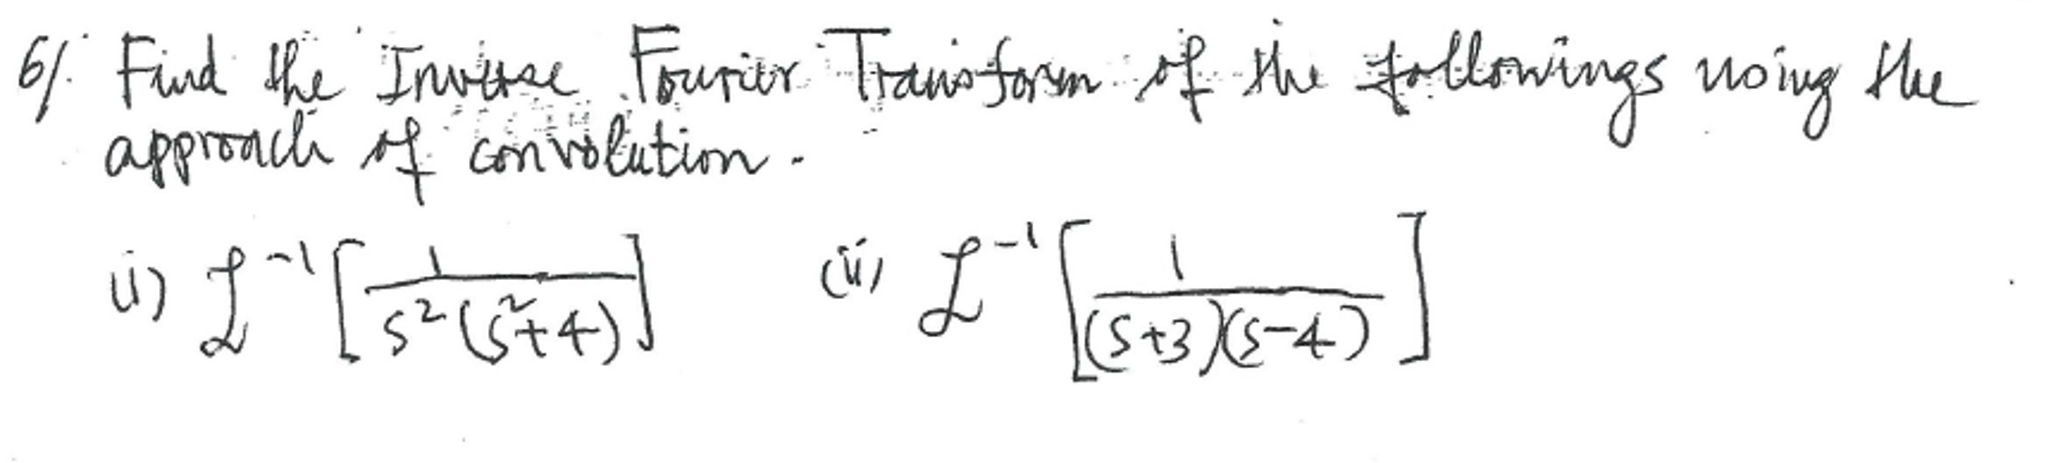 6/. Find the Inverse Fourier Transform of the followings using the
approach of convolution.
(i) ℒ⁻¹[1/(s²(s²+4))] (ii) ℒ⁻¹[1/((s+3)(s-4))]